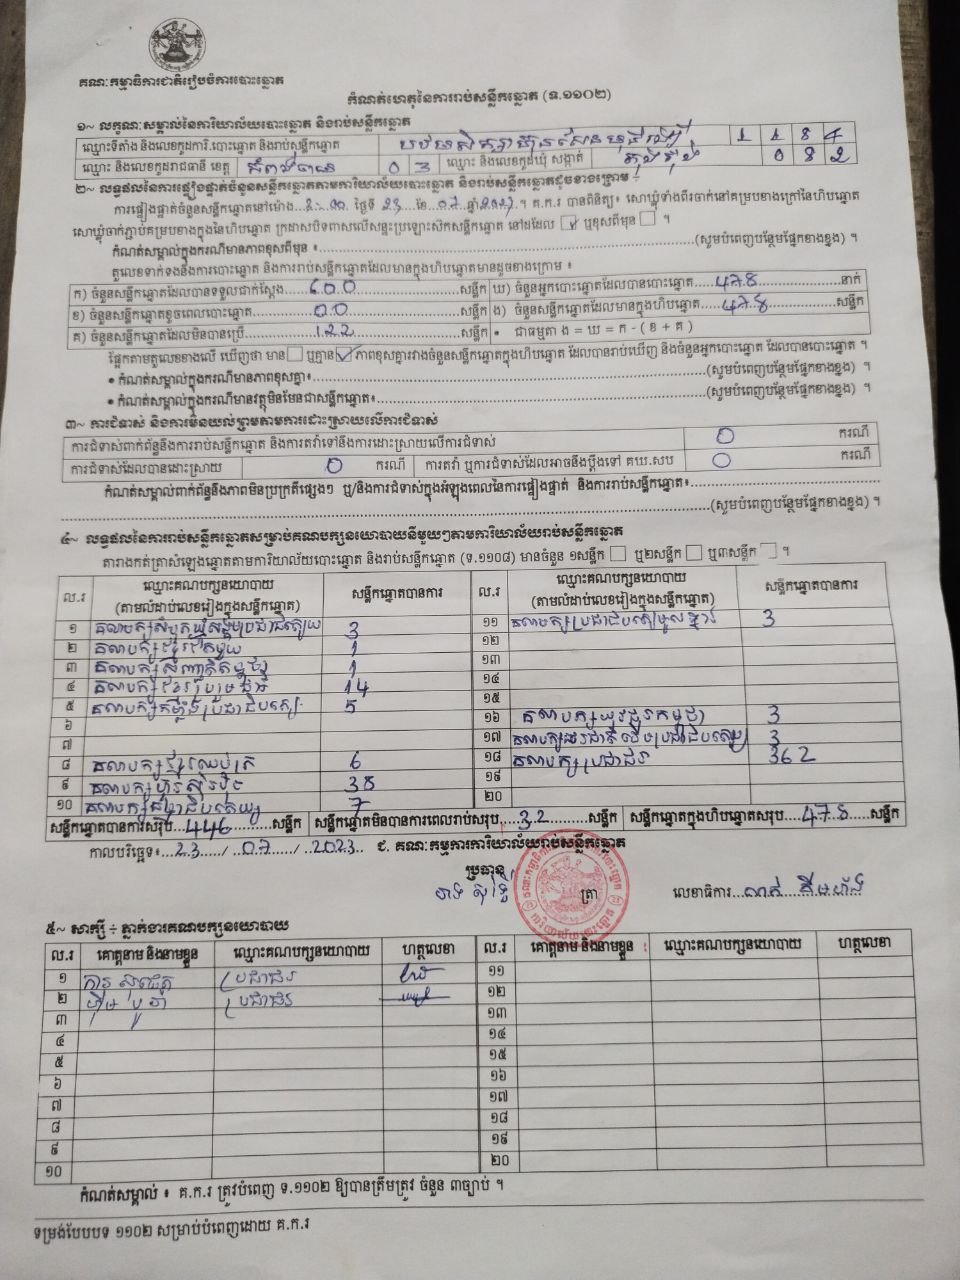 គណៈកម្មាធិការជាតិរៀបចំការបោះឆ្នោត
កំណត់ហេតុនៃការរាប់សន្លឹកឆ្នោត (ទ.១១០២)
១~ លក្ខណៈសម្គាល់នៃការិយាល័យបោះឆ្នោត និងរាប់សន្លឹកឆ្នោត
ឈ្មោះទីតាំង និងលេខកូដការិ.បោះឆ្នោត និងរាប់សន្លឹកឆ្នោត 1 1 8 4
ឈ្មោះ និងលេខកូដរាជធានី ខេត្ត កំពង់ចាម 0 3 ឈ្មោះ និងលេខកូដឃុំ សង្កាត់ 0 8 2
២~ លទ្ធផលនៃការផ្ទៀងផ្ទាត់ចំនួនសន្លឹកឆ្នោតតាមការិយាល័យបោះឆ្នោត និងរាប់សន្លឹកឆ្នោតដូចខាងក្រោម ÷
ការផ្ទៀងផ្ទាត់ចំនួនសន្លឹកឆ្នោតនៅម៉ោង ថ្ងៃទី 23 ខែ 07 ឆ្នាំ 2023 ។ គ.ក.រ បានពិនិត្យ៖ សោឃ្លុំទាំងពីរចាក់នៅគម្របខាងក្រៅនៃហិបឆ្នោត
សោឃ្លុំចាក់ភ្ជាប់គម្របខាងក្នុងនៃហិបឆ្នោត ក្រដាសបិទពាសលើសន្ទះប្រឡោះសឹកសន្លឹកឆ្នោត នៅដដែល ✓ ឬខុសពីមុន ។
កំណត់សម្គាល់ក្នុងករណីមានភាពខុសពីមុន ៖ (សូមបំពេញបន្ថែមផ្នែកខាងខ្នង) ។
តួលេខទាក់ទងនឹងការបោះឆ្នោត និងការរាប់សន្លឹកឆ្នោតដែលមានក្នុងហិបឆ្នោតមានដូចខាងក្រោម ៖
ក) ចំនួនសន្លឹកឆ្នោតដែលបានទទួលជាក់ស្តែង 600 សន្លឹក ឃ) ចំនួនអ្នកបោះឆ្នោតដែលបានបោះឆ្នោត 478 នាក់
ខ) ចំនួនសន្លឹកឆ្នោតខូចពេលបោះឆ្នោត 00 សន្លឹក ង) ចំនួនសន្លឹកឆ្នោតដែលមានក្នុងហិបឆ្នោត 478 សន្លឹក
គ) ចំនួនសន្លឹកឆ្នោតដែលមិនបានប្រើ 122 សន្លឹក • ជាធម្មតា ង = ឃ = ក - ( ខ + គ )
ផ្អែកតាមតួលេខខាងលើ ឃើញថា មាន ឬគ្មាន ✓ ភាពខុសគ្នារវាងចំនួនសន្លឹកឆ្នោតក្នុងហិបឆ្នោត ដែលបានរាប់ឃើញ និងចំនួនអ្នកបោះឆ្នោត ដែលបានបោះឆ្នោត ។
• កំណត់សម្គាល់ក្នុងករណីមានភាពខុសគ្នា៖ (សូមបំពេញបន្ថែមផ្នែកខាងខ្នង) ។
• កំណត់សម្គាល់ក្នុងករណីមានវត្ថុមិនមែនជាសន្លឹកឆ្នោត៖ (សូមបំពេញបន្ថែមផ្នែកខាងខ្នង) ។
៣~ ការជំទាស់ និងការមិនយល់ព្រមតាមការដោះស្រាយលើការជំទាស់
ការជំទាស់ពាក់ព័ន្ធនឹងការរាប់សន្លឹកឆ្នោត និងការតវ៉ាទៅនឹងការដោះស្រាយលើការជំទាស់ 0 ករណី
ការជំទាស់ដែលបានដោះស្រាយ 0 ករណី ការតវ៉ា ឬការជំទាស់ដែលអាចនឹងប្តឹងទៅ គឃ.សប 0 ករណី
កំណត់សម្គាល់ពាក់ព័ន្ធនឹងភាពមិនប្រក្រតីផ្សេងៗ ឬ/និងការជំទាស់ក្នុងអំឡុងពេលនៃការផ្ទៀងផ្ទាត់ និងការរាប់សន្លឹកឆ្នោត៖
(សូមបំពេញបន្ថែមផ្នែកខាងខ្នង) ។
៤~ លទ្ធផលនៃការរាប់សន្លឹកឆ្នោតសម្រាប់គណបក្សនយោបាយនីមួយៗតាមការិយាល័យរាប់សន្លឹកឆ្នោត
តារាងកត់ត្រាសំឡេងឆ្នោតតាមការិយាល័យបោះឆ្នោត និងរាប់សន្លឹកឆ្នោត (ទ.១១០៨) មានចំនួន ១សន្លឹក ឬ២សន្លឹក ឬ៣សន្លឹក ។
ល.រ ឈ្មោះគណបក្សនយោបាយ (តាមលំដាប់លេខរៀងក្នុងសន្លឹកឆ្នោត) សន្លឹកឆ្នោតបានការ ល.រ ឈ្មោះគណបក្សនយោបាយ (តាមលំដាប់លេខរៀងក្នុងសន្លឹកឆ្នោត) សន្លឹកឆ្នោតបានការ
១ គណបក្សសំបុកឃ្មុំសង្គមប្រជាធិបតេយ្យ 3 ១១ គណបក្សប្រជាធិបតេយ្យមូលដ្ឋាន 3
២ គណបក្សខ្មែរតែមួយ 1 ១២
៣ 1 ១៣
៤ គណបក្សខ្មែររួបរួមជាតិ 14 ១៤
៥ គណបក្សកម្លាំងប្រជាធិបតេយ្យ 5 ១៥
៦ ១៦ គណបក្សយុវជនកម្ពុជា 3
៧ ១៧ 3
៨ គណបក្ស 6 ១៨ គណបក្សប្រជាជន 362
៩ គណបក្សហ៊្វុនស៊ិនប៉ិច 38 ១៩
១០ 7 ២០
សន្លឹកឆ្នោតបានការសរុប 446 សន្លឹក សន្លឹកឆ្នោតមិនបានការពេលរាប់សរុប 32 សន្លឹក សន្លឹកឆ្នោតក្នុងហិបឆ្នោតសរុប 478 សន្លឹក
កាលបរិច្ឆេទ៖ 23 / 07 / 2023 ជ. គណៈកម្មការការិយាល័យរាប់សន្លឹកឆ្នោត
ប្រធាន
ត្រា លេខាធិការ
៥~ សាក្សី ÷ ភ្នាក់ងារគណបក្សនយោបាយ
ល.រ គោត្តនាម និងនាមខ្លួន ឈ្មោះគណបក្សនយោបាយ ហត្ថលេខា ល.រ គោត្តនាម និងនាមខ្លួន ឈ្មោះគណបក្សនយោបាយ ហត្ថលេខា
១ ប្រជាជន ១១
២ ប្រជាជន ១២
៣ ១៣
៤ ១៤
៥ ១៥
៦ ១៦
៧ ១៧
៨ ១៨
៩ ១៩
១០ ២០
កំណត់សម្គាល់ ៖ គ.ក.រ ត្រូវបំពេញ ទ.១១០២ ឱ្យបានត្រឹមត្រូវ ចំនួន ៣ច្បាប់ ។
ទម្រង់បែបបទ ១១០២ សម្រាប់បំពេញដោយ គ.ក.រ